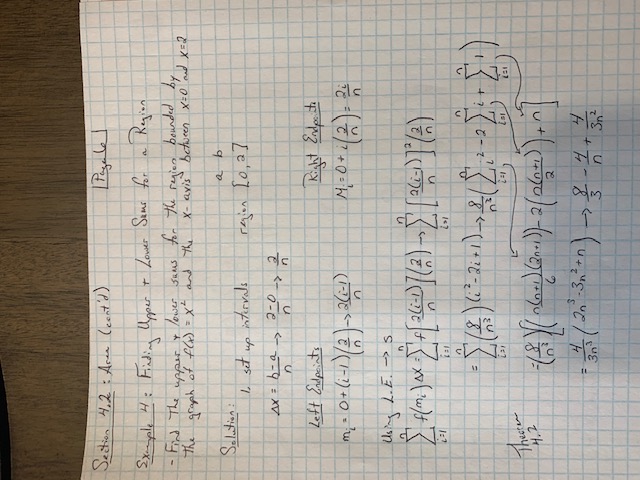 Section 4.2: Area (cont'd) Page 6
Example 4: Finding Upper + Lower Sums for a Region
- Find the upper + lower sums for the region bounded by
the graph of f(x) = x² and the x-axis between x=0 and x=2
Solution:
1. set up intervals
a b
region [0, 2]
Δx = b-a/n → 2-0/n → 2/n
Left Endpoints Right Endpoints
mᵢ = 0 + (i-1)(2/n) → 2(i-1)/n Mᵢ = 0 + i(2/n) = 2i/n
Using L.E. → s
∑ᵢ₌₁ⁿ f(mᵢ)Δx = ∑ᵢ₌₁ⁿ f[2(i-1)/n](2/n) → ∑ᵢ₌₁ⁿ [2(i-1)/n]²(2/n)
= ∑ᵢ₌₁ⁿ (8/n³)(i²-2i+1) → 8/n³(∑ᵢ₌₁ⁿ i² - 2∑ᵢ₌₁ⁿ i + ∑ᵢ₌₁ⁿ 1)
Theorem
4.2
= (8/n³)[(n(n+1)(2n+1)/6) - 2(n(n+1)/2) + n]
= 4/3n³(2n³-3n²+n) → 8/3 - 4/n + 4/3n²